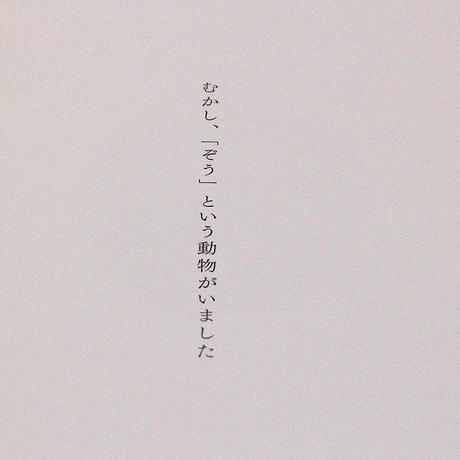 むかし、「ぞう」という動物がいました